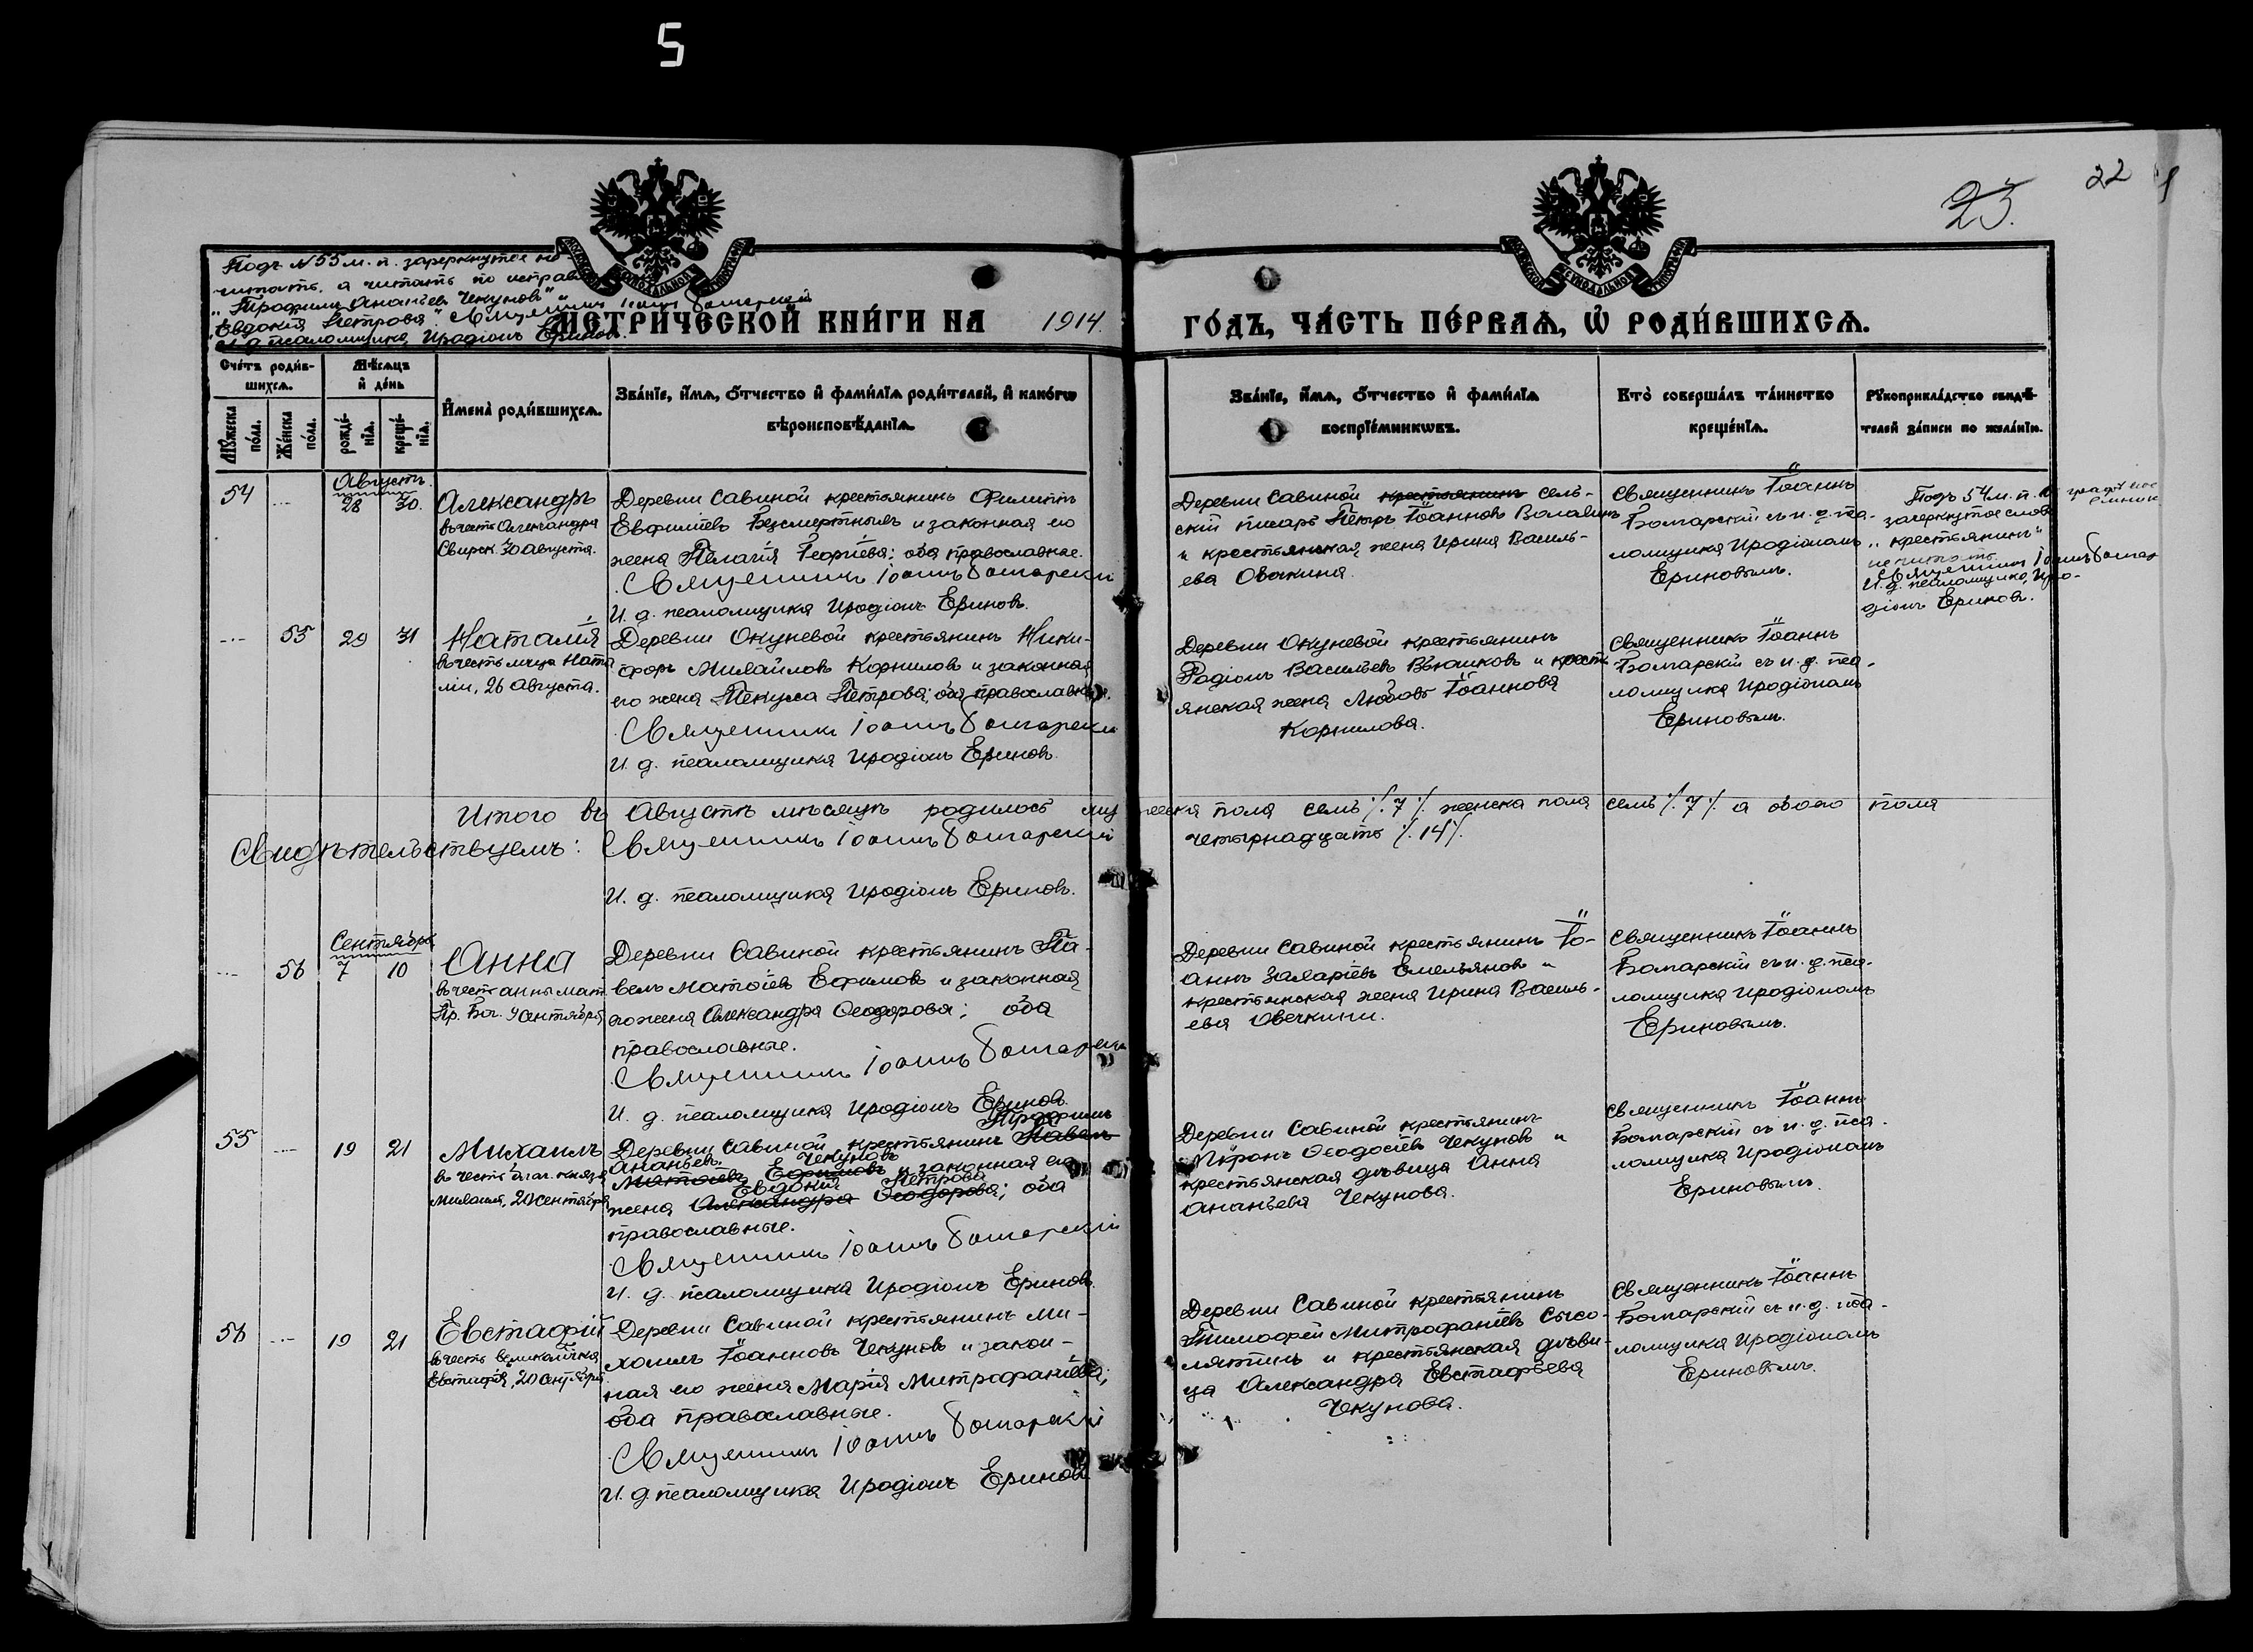 5
22
23.
Подъ N 55 м. п. зачеркнутое не
читать, а читать по исправ
„Трофимъ Ананьевъ Чекуновъ" и
„Евдокія Петрова". Священникъ Іоаннъ Болгарскій
И. д. псаломщика Иродіонъ Ериновъ.
МЕТРИ́ЧЕСКОЙ КНИ́ГИ НА 1914 ГО́ДЪ, ЧА́СТЬ ПЕ́РВАѦ, Ѽ РОДИ́ВШИХСѦ.
Сче́тъ роди́в-
шихсѧ.
Мѣ́сѧцъ
и҆ де́нь
Мꙋ́жеска
по́ла.
Же́нска
по́ла.
рожде́-
нїѧ.
креще́-
нїѧ.
И҆мена̀ роди́вшихсѧ.
Зва́нїе, и҆́мѧ, ѻ҆́тчество и҆ фами́лїѧ роди́телей, и҆ како́гѡ
вѣроисповѣ́данїѧ.
Зва́нїе, и҆́мѧ, ѻ҆́тчество и҆ фами́лїѧ
воспрїе́мникѡвъ.
Кто̀ соверша́лъ та́инство
креще́нїѧ.
Рꙋкоприкла́дство свидѣ́-
телей за́писи по жела́нїю.
54 Августъ
28 30.
Александръ
въ честь Александра
Свирск. 30 августа.
Деревни Савиной крестьянинъ Филиппъ
Евфиміевъ Безсмертныхъ и законная его
жена Пелагія Георгіева; оба православные.
Священникъ Іоаннъ Болгарскій
И. д. псаломщика Иродіонъ Ериновъ.
Деревни Савиной крестьянинъ сель-
скій писарь Петръ Іоанновъ
и крестьянская жена Ирина Василь-
ева Овчкина.
Священникъ Іоаннъ
Болгарскій съ и. д. пса-
ломщика Иродіономъ
Ериновымъ.
Подъ 54 м. п. въ графѣ
зачеркнутое слово
„крестьянинъ"
не читать.
Священникъ Іоаннъ Болгар
И. д. псаломщика, Иро-
діонъ Ериновъ.
55 29 31
Наталія
въ честь мчца Ната
ліи, 26 августа.
Деревни Окуневой крестьянинъ Ники-
форъ Михайловъ Корниловъ и законная
его жена Петрова; оба православные.
Священникъ Іоаннъ Болгарскій
И. д. псаломщика Иродіонъ Ериновъ.
Деревни Окуневой крестьянинъ
Родіонъ Васильевъ Вьюшковъ и кресть
янская жена Любовь Іоаннова
Корнилова.
Священникъ Іоаннъ
Болгарскій съ и. д. пса-
ломщика Иродіономъ
Ериновымъ.
Итого въ Августѣ мѣсяцѣ родилось мужеска пола семь ·/. 7 ·/. женска пола семь ·/. 7 ·/. а обоего пола
четырнадцать ·/. 14 ·/.
Свидѣтельствуемъ: Священникъ Іоаннъ Болгарскій
И. д. псаломщика Иродіонъ Ериновъ.
Сентябрь
56 7 10
Анна
въ честь анны мат.
Пр. Бог. 9 сентября
Деревни Савиной крестьянинъ Па-
велъ Матоіевъ Ефимовъ и законная
его жена Александра Ѳеодорова; оба
православные.
Священникъ Іоаннъ Болгарскій
И. д. псаломщика Иродіонъ Ериновъ.
Деревни Савиной крестьянинъ Іо-
аннъ Захаріевъ Емельяновъ и
крестьянская жена Ирина Василь-
ева Овечкина.
Священникъ Іоаннъ
Болгарскій съ и. д. пса-
ломщика Иродіономъ
Ериновымъ.
55 19 21
Михаилъ
въ честь благ. князя
Михаила, 20 сентября
Трофимъ
Деревни Савиной крестьянинъ Павелъ
Ананьевъ Чекуновъ
Матоіевъ Ефимовъ и законная его
Евдокія Петрова
жена Александра Ѳеодорова; оба
православные.
Священникъ Іоаннъ Болгарскій
И. д. псаломщика Иродіонъ Ериновъ
Деревни Савиной крестьянинъ
Миронъ Ѳеодосіевъ Чекуновъ и
крестьянская дѣвица Анна
Ананьева Чекунова.
Священникъ Іоаннъ
Болгарскій съ и. д. пса-
ломщика Иродіономъ
Ериновымъ.
56 19 21
Евстафій
въ честь великомучен
Евстафія, 20 сентября
Деревни Савиной крестьянинъ Ми-
хаилъ Іоанновъ Чекуновъ и закон-
ная его жена Марія Митрофаніева;
оба православные.
Священникъ Іоаннъ Болгарскій
И. д. псаломщика Иродіонъ Ериновъ
Деревни Савиной крестьянинъ
Тимофей Митрофаніевъ Сысо-
лятинъ и крестьянская дѣви-
ца Александра Евстафьева
Чекунова.
Священникъ Іоаннъ
Болгарскій съ и. д. пса-
ломщика Иродіономъ
Ериновымъ.